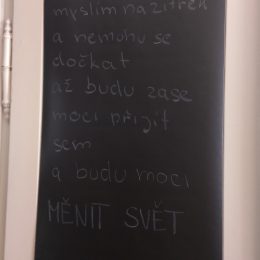 myslím na zítřek
a nemohu se
dočkat
až budu zase
moci přijít
sem
a budu moci
MĚNIT SVĚT